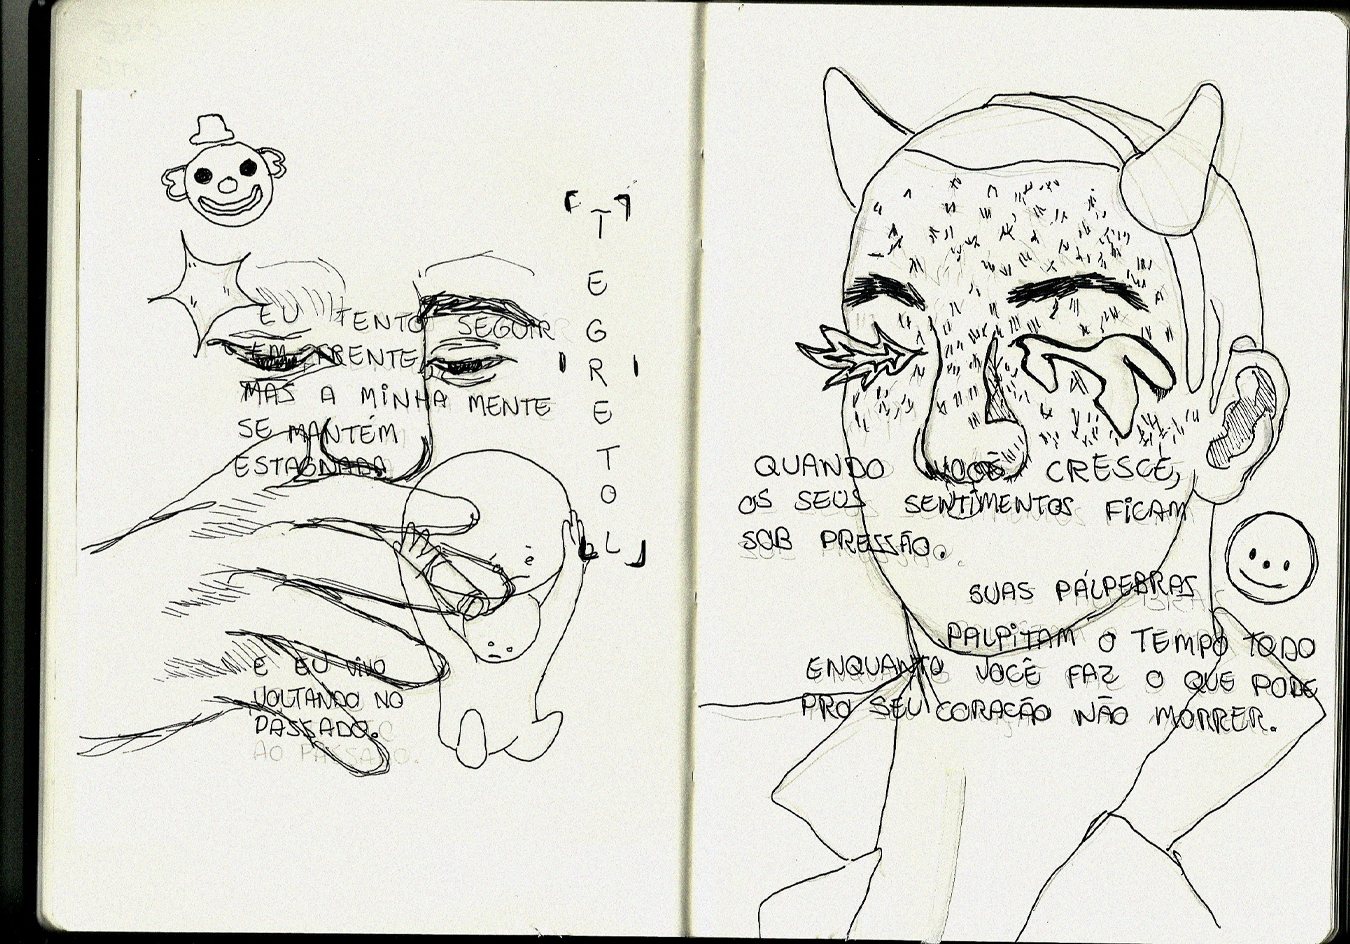 EU TENTO SEGUIR
EM FRENTE,
MAS A MINHA MENTE
SE MANTÉM
ESTAGNADA
E EU VIVO
VOLTANDO NO
PASSADO.
AO PASSADO.
TEGRETOL
QUANDO VOCÊ CRESCE,
OS SEUS SENTIMENTOS FICAM
SOB PRESSÃO.
SUAS PÁLPEBRAS
PALPITAM O TEMPO TODO
ENQUANTO VOCÊ FAZ O QUE PODE
PRO SEU CORAÇÃO NÃO MORRER.